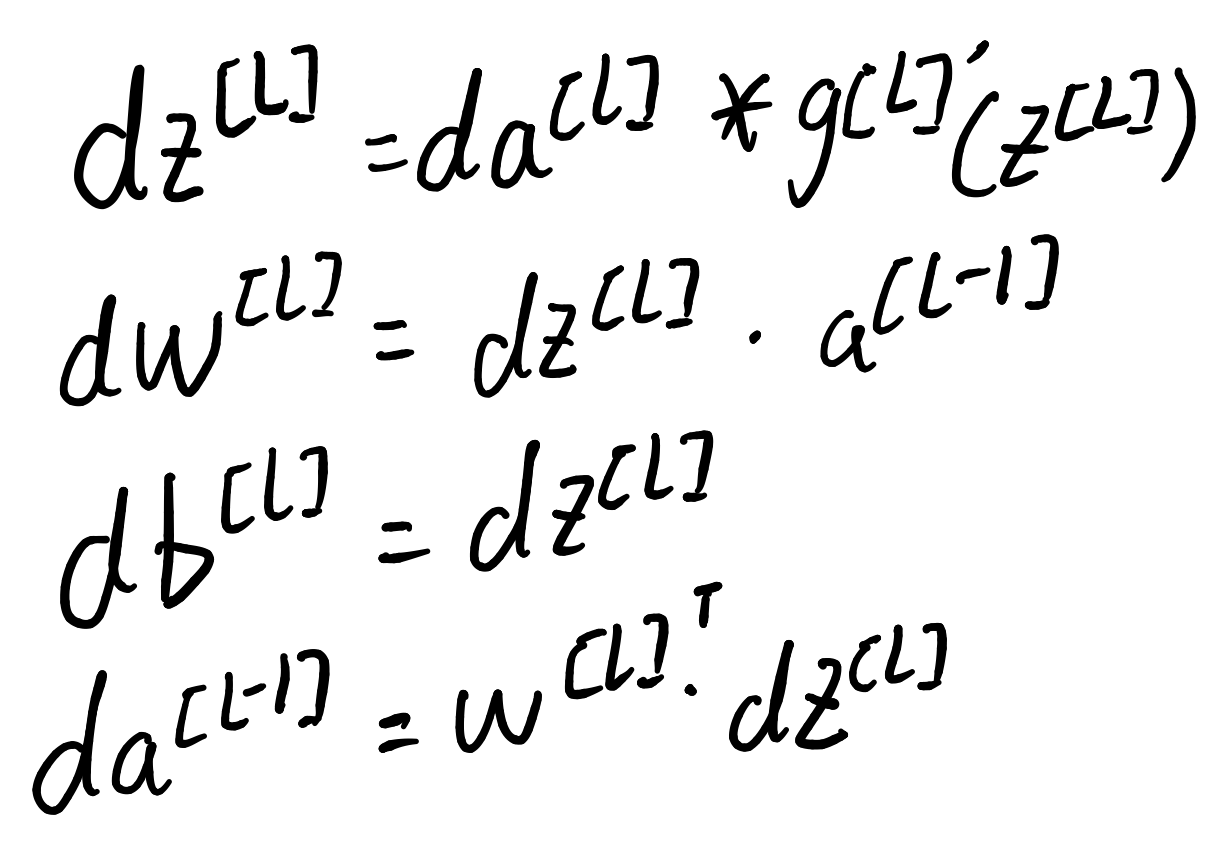 dz^[L] = da^[L] * g^[L]'(z^[L])
dw^[L] = dz^[L] · a^[L-1]
db^[L] = dz^[L]
da^[L-1] = w^[L]ᵀ · dz^[L]